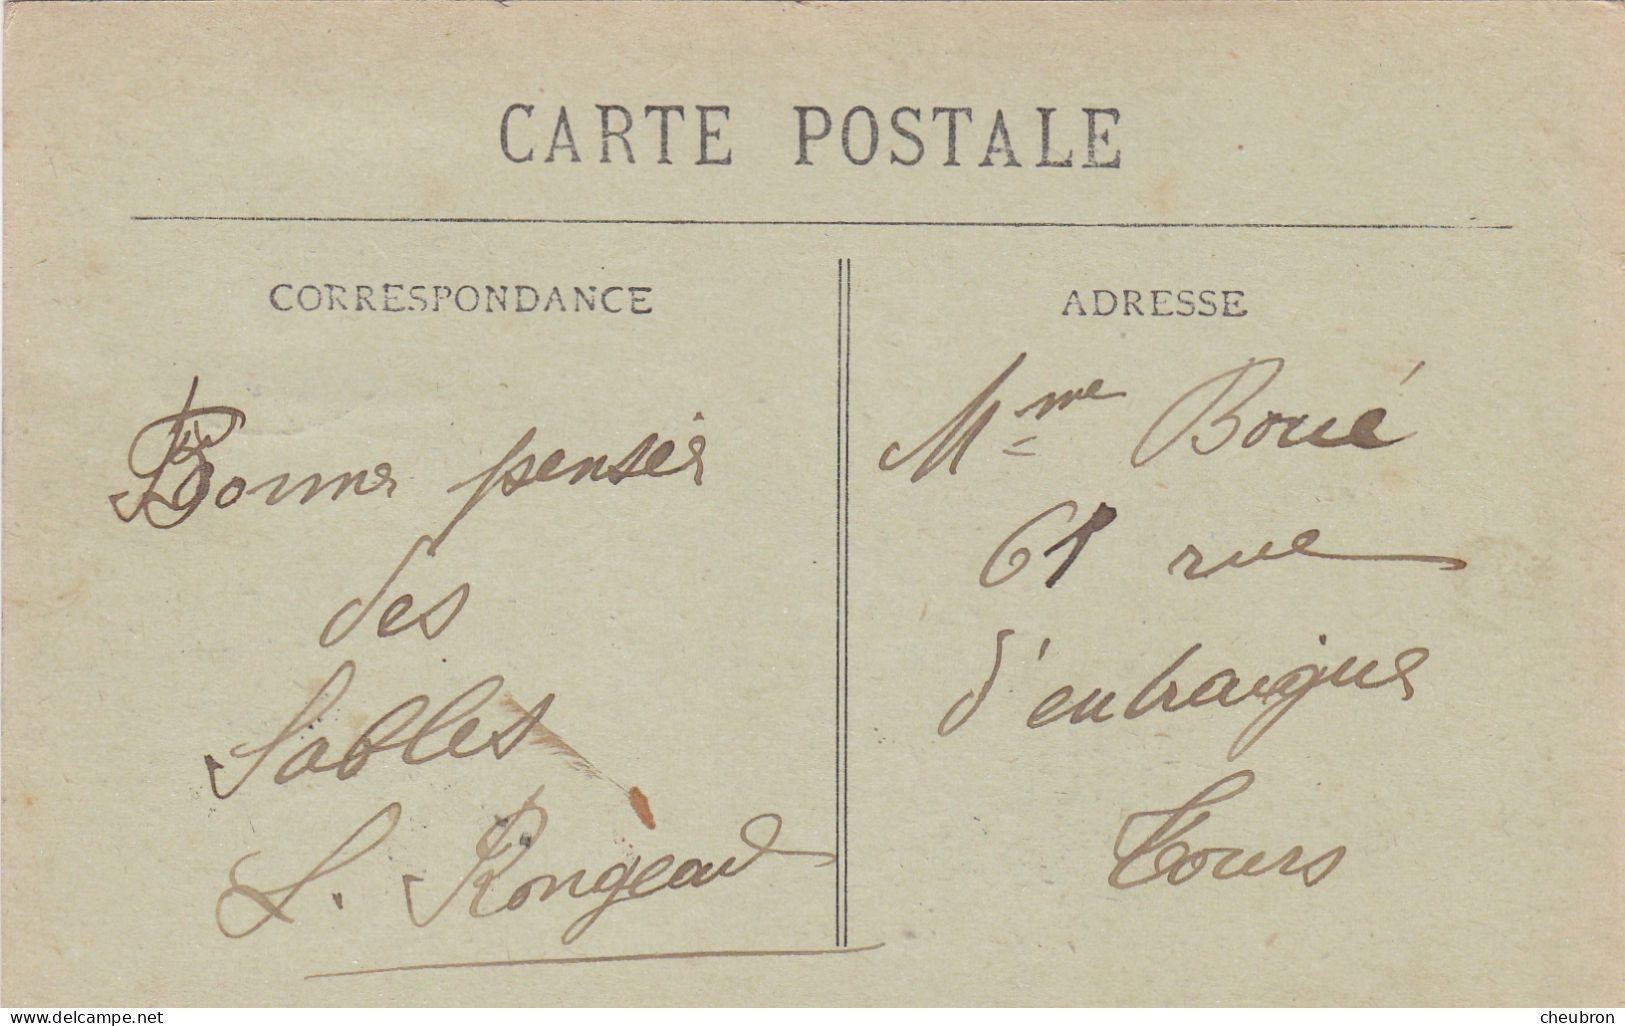 CARTE POSTALE
CORRESPONDANCE
Bonne pensée
des
Sables
L. Rongeard
ADRESSE
Mme Boué
61 rue
d'entraigues
Tours
delcampe.net
cheubron